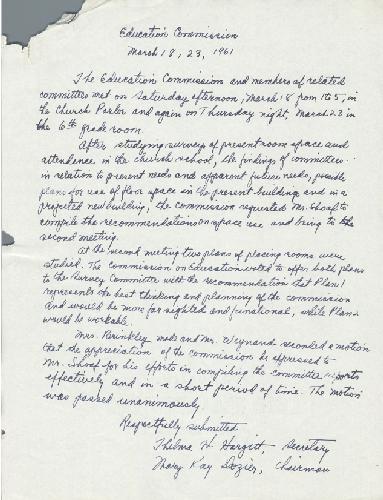 Education Commission
March 18, 23, 1961
The Education Commission and members of related
committees met on Saturday afternoon, March 18 from 1 to 5, in
the Church Parlor and again on Thursday night, March 23 in
the 6th grade room.
After studying surveys of present room space and
attendance in the church school, the findings of committees
in relation to present needs and apparent future needs, possible
plans for use of floor space in the present building and in a
projected new building, the commission requested Mr. Shoaf to
compile the recommendations on space use and bring to the
second meeting.
At the second meeting two plans of placing rooms were
studied. The Commission on Education voted to offer both plans
to the Survey Committee with the recommendation that Plan I
represents the best thinking and planning of the commission
and would be more far sighted and functional, while Plan
would be workable.
Mrs. Brinkley made and Mr. Weynand seconded a motion
that the appreciation of the commission be expressed to
Mr. Shoaf for his efforts in compiling the committee reports
effectively and in a short period of time. The motion
was passed unanimously.
Respectfully submitted
Thelma H. Hargett, Secretary
Mary Kay Dozier, Chairman